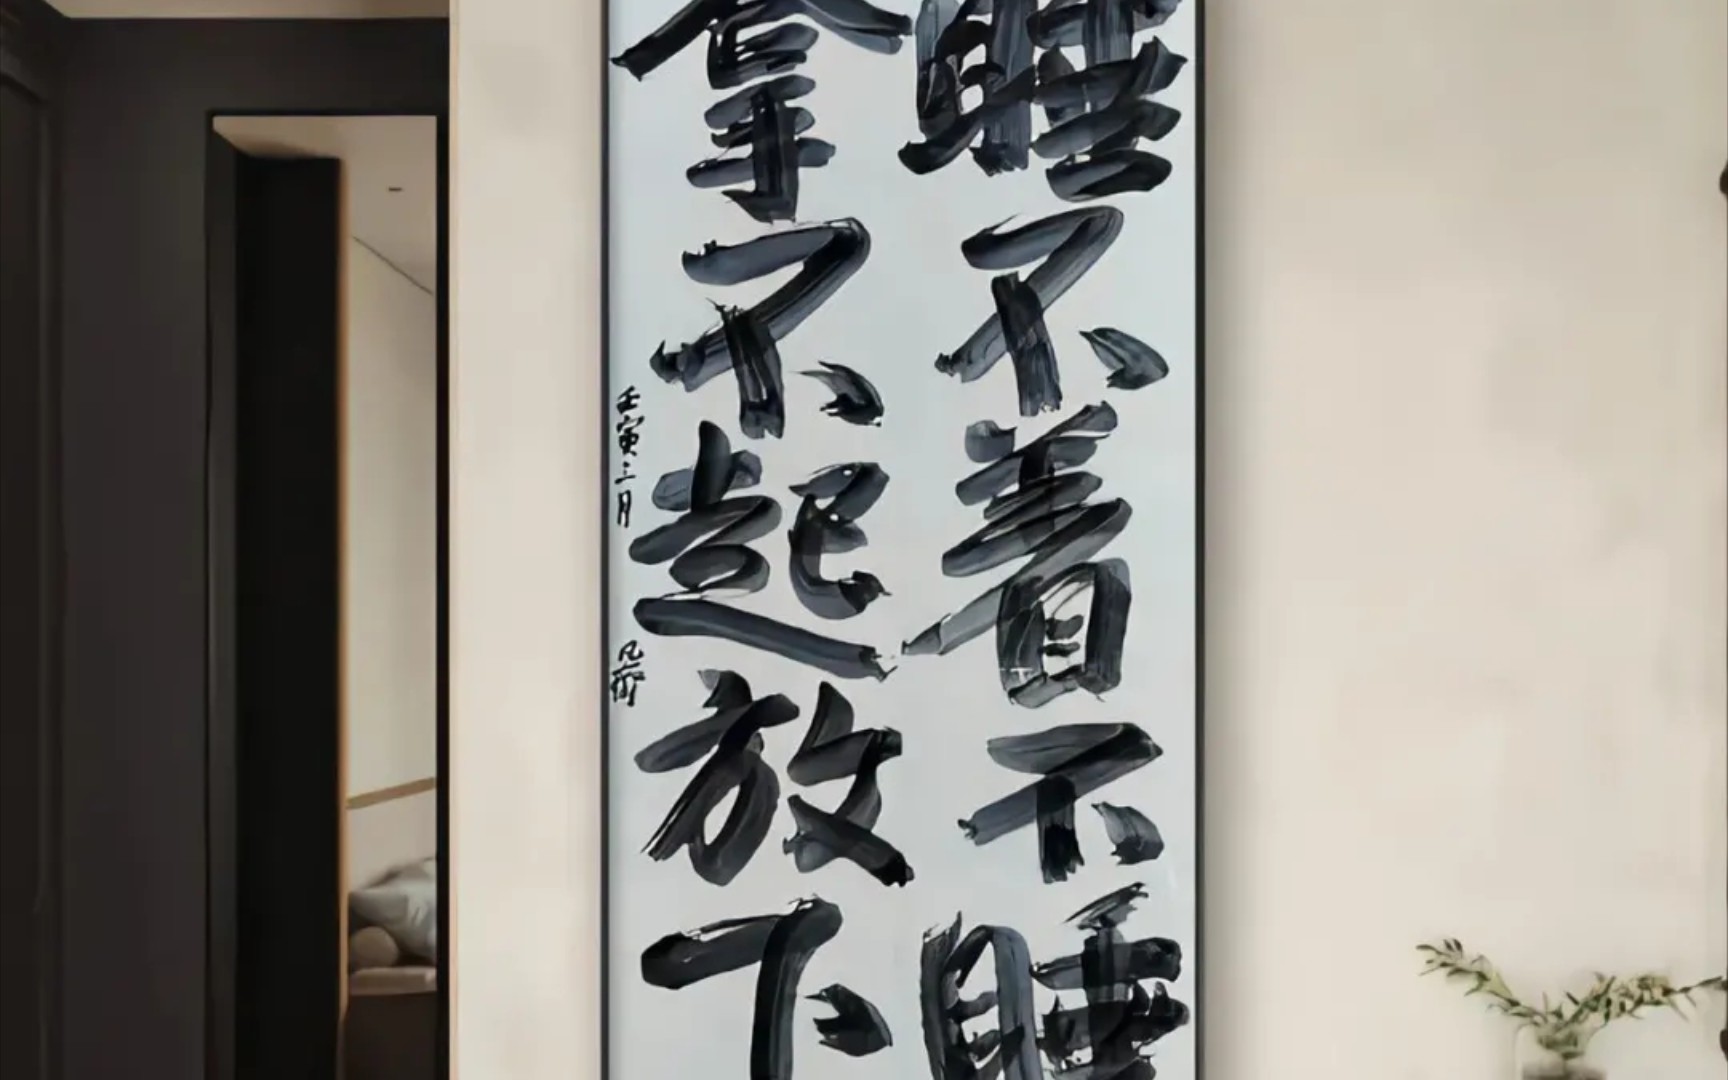 睡不着不睡
拿不起放下
壬寅三月